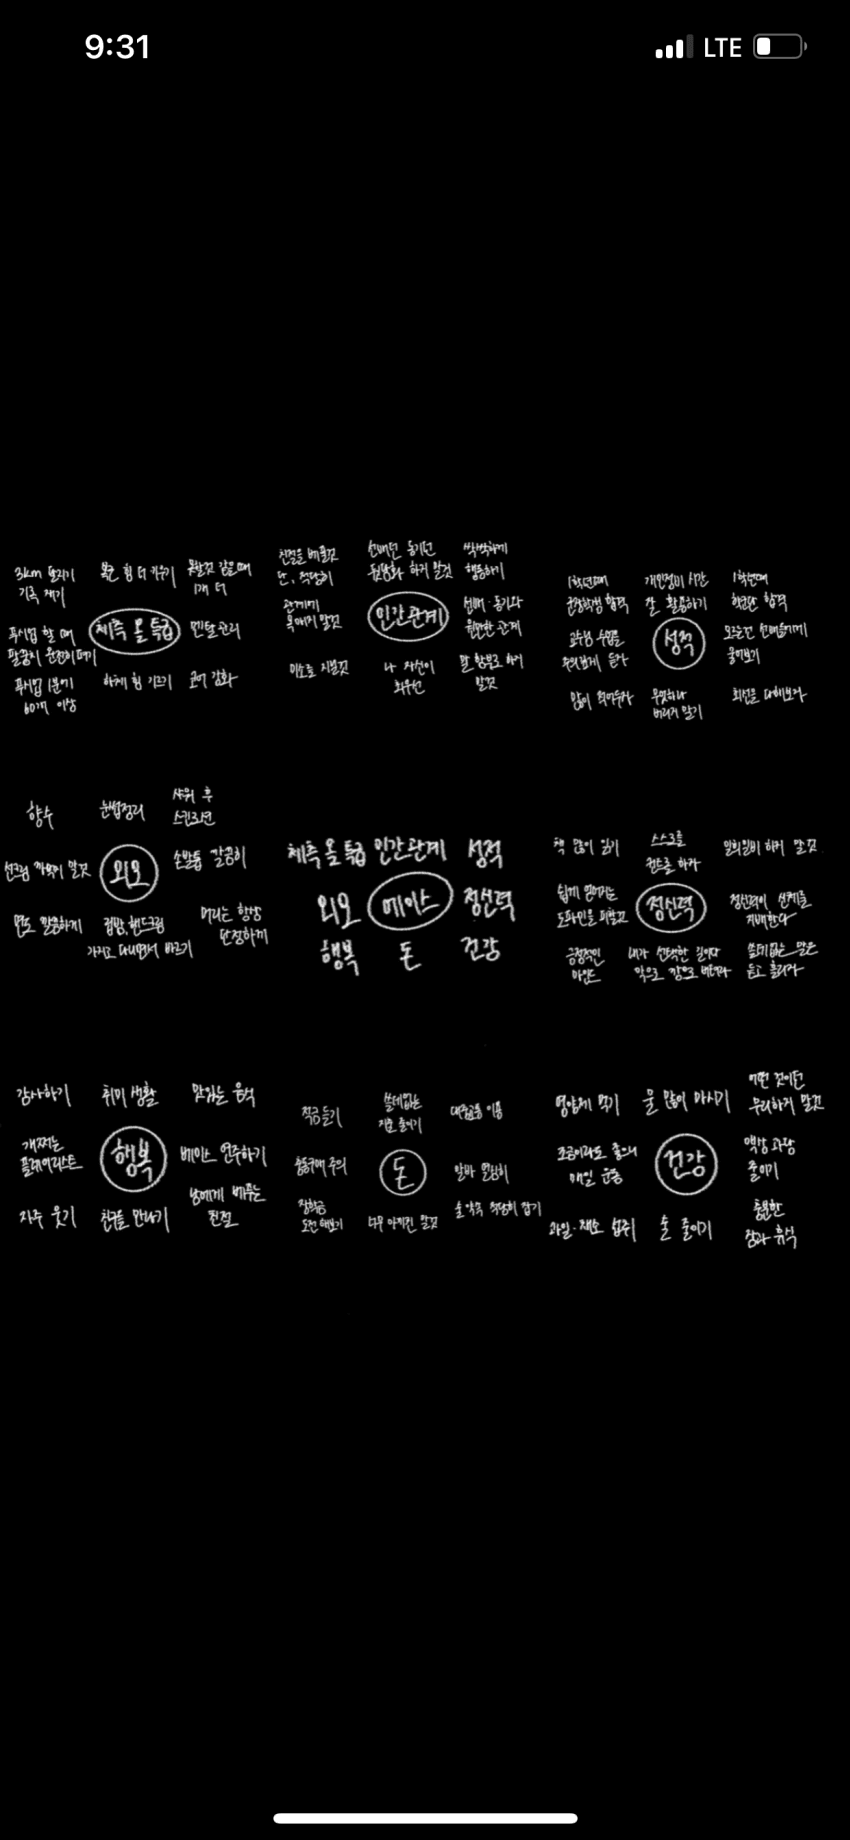 9:31
LTE
3km 달리기
기록 재기
복근 힘 더 키우기
못할것 같을때
1개 더
푸시업 할 때
팔꿈치 완전히 펴기
체측 올 특급
멘탈관리
푸시업 1분에
60개 이상
하체 힘 기르기
코어 강화
친절을 베풀것
단, 적당히
선배던 동기던
뒷담화 하게 말것
싹싹하게
행동하기
관계에
목매지 말것
인간관계
선배·동기와
원만한 관계
미소로 지낼것
나 자신이
최우선
말 함부로 하지
말것
1학년때
군장학생 합격
개인정비 시간
잘 활용하기
1학년때
학군단 합격
교수님 수업을
주의깊게 듣자
성적
모르는건 선배들에게
물어보기
많이 적어두자
무엇하나
버리지 말기
최선을 다해보자
향수
눈썹정리
샤워 후
스킨로션
선크림 까먹지 말것
외모
손발톱 깔끔히
면도 말끔하게
립밤, 핸드크림
가지고 다니면서 바르기
머리는 항상
단정하게
체측 올 특급 인간관계 성적
외모 에이스 정신력
행복 돈 건강
책 많이 읽기
스스로를
컨트롤 하자
일희일비 하지 말것
쉽게 얻어지는
도파민을 피할것
정신력
정신력이 신체를
지배한다
긍정적인
마인드
내가 선택한 길이다
악으로 깡으로 버텨라
쓸데없는 말은
듣고 흘리자
감사하기
취미 생활
맛있는 음식
개쩌는
플레이리스트
행복
베이스 연주하기
자주 웃기
친구들 만나기
남에게 베푸는
친절
적금 들기
쓸데없는
지출 줄이기
대중교통 이용
충동구매 주의
돈
알바 열심히
장학금
도전 해보기
너무 아끼진 말것
술 약속 적당히 잡기
영양제 먹기
물 많이 마시기
어떤 것이던
무리하게 말것
조금이라도 좋으니
매일 운동
건강
액상 과당
줄이기
과일·채소 섭취
술 줄이기
충분한
잠과 휴식